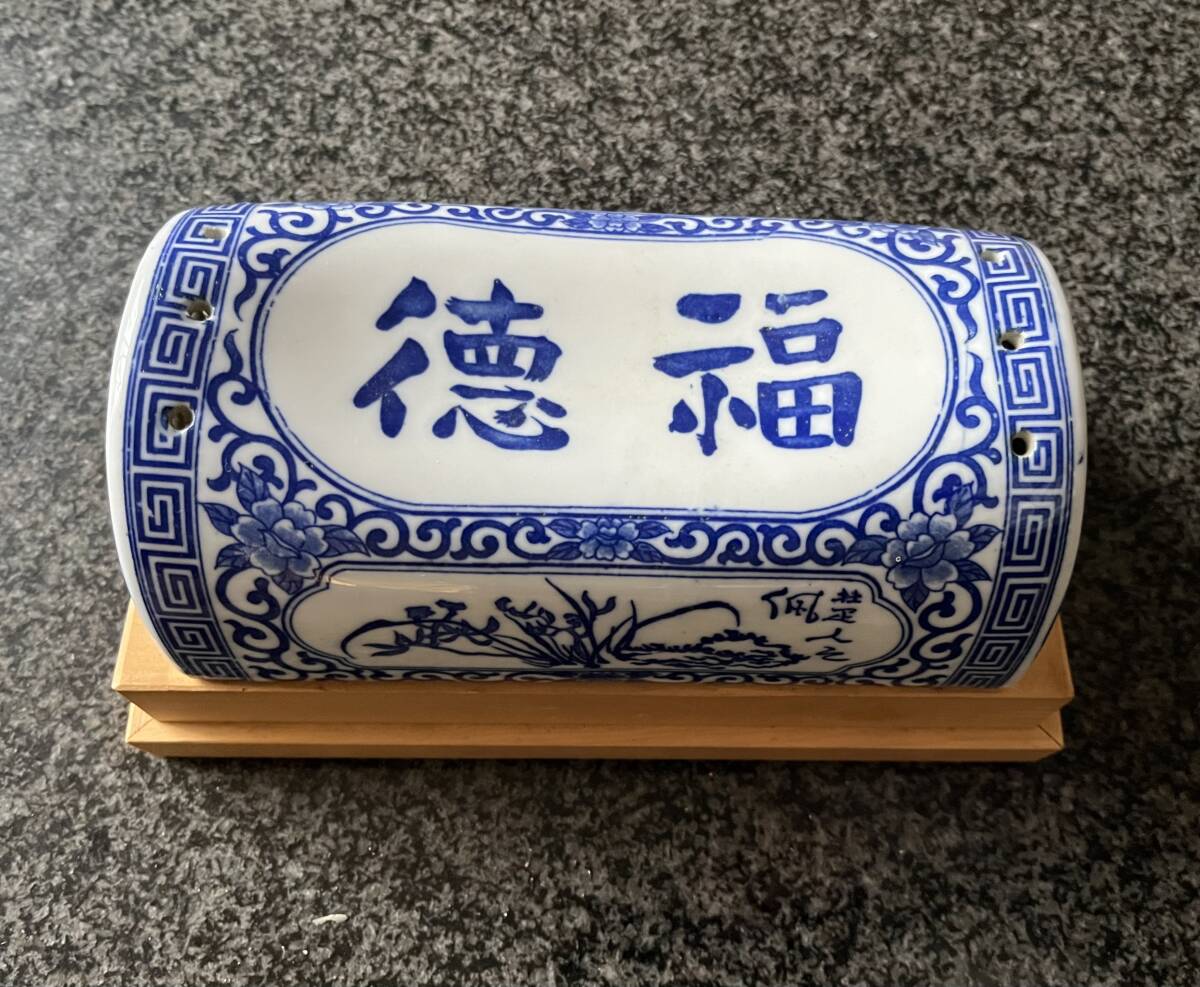 福德
楚人之
佩